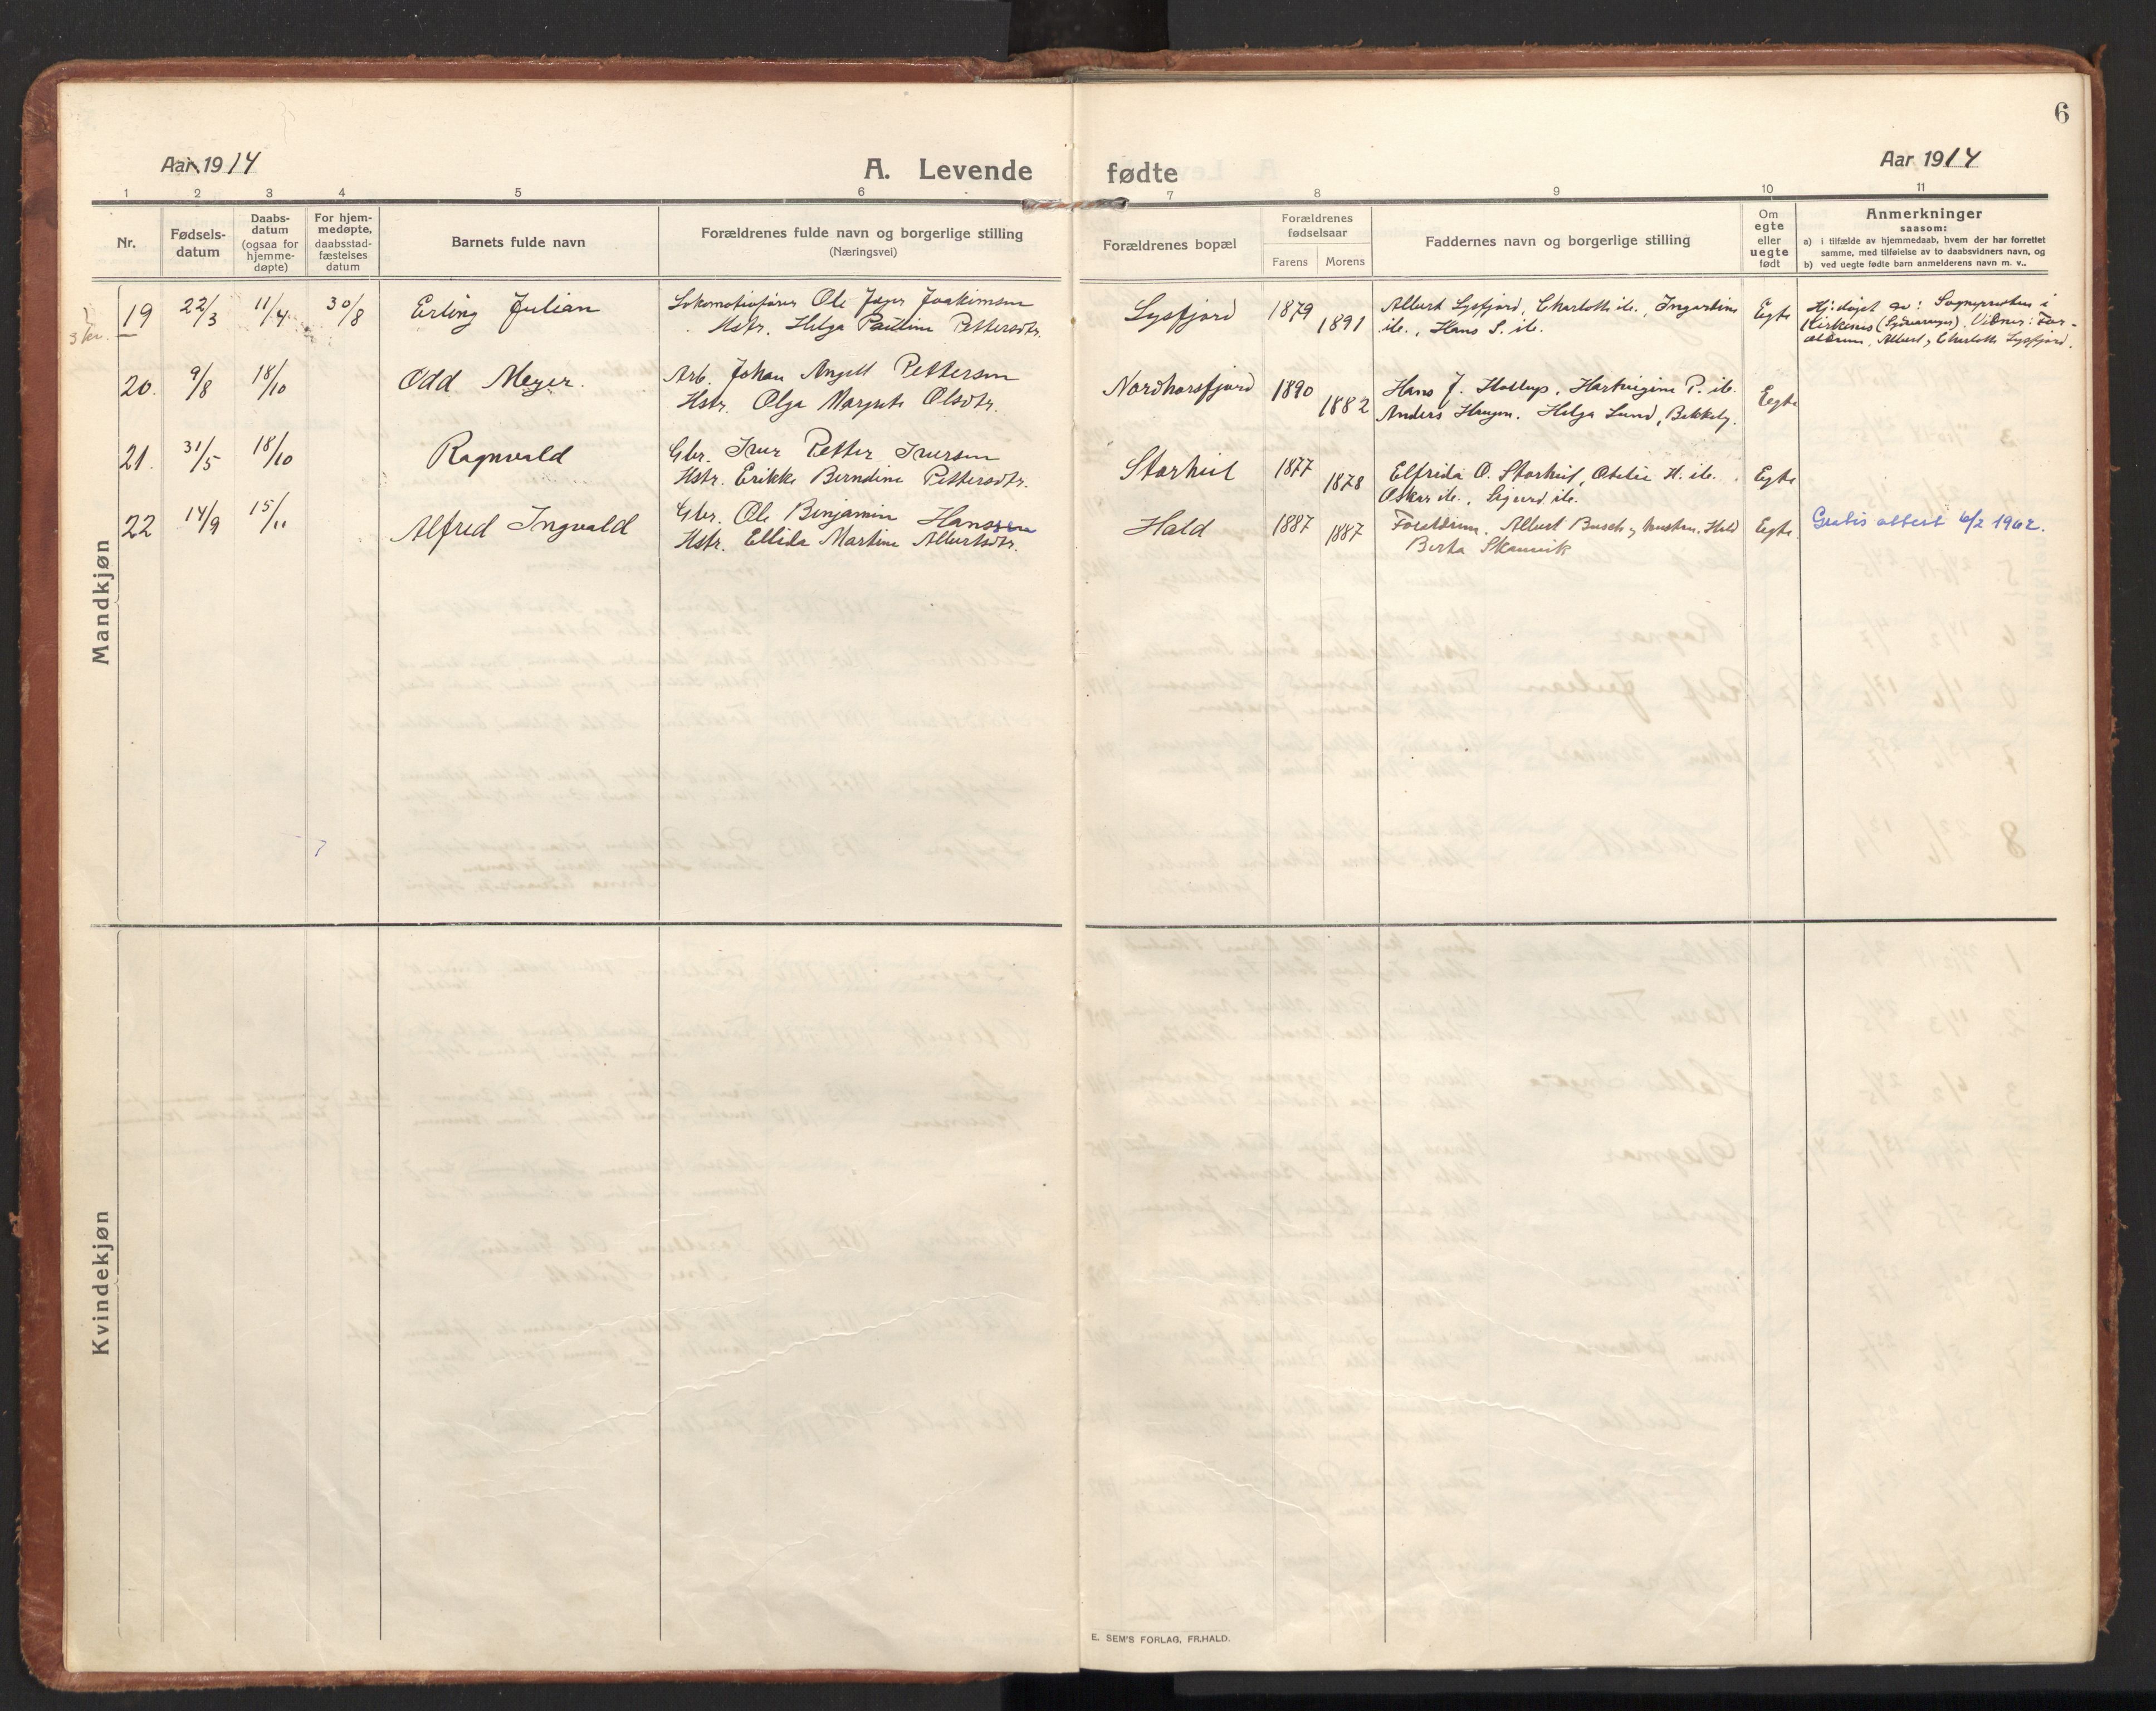 6
Aar 1914
A. Levende fødte
Aar 1914
1 2 3 4 5 6 7 8 9 10 11
Nr.
Fødsels-
datum
Daabs-
datum
(ogsaa for
hjemme-
døpte)
For hjem-
medøpte,
daabsstad-
fæstelses
datum
Barnets fulde navn
Forældrenes fulde navn og borgerlige stilling
(Næringsvei)
Forældrenes bopæl
Forældrenes
fødselsaar
Farens Morens
Faddernes navn og borgerlige stilling
Om
egte
eller
uegte
født
Anmerkninger
saasom:
a) i tilfælde av hjemmedaab, hvem der har forrettet
samme, med tilføielse av to daabsvidners navn, og
b) ved uegte fødte barn anmelderens navn m. v..
Mandkjøn
19 22/3 11/4 30/8 Erling Julian
Lokomotivfører Ole Joakimsen
Hstr. Helga Pauline Pettersdtr.
Lysfjord 1879 1891
Albert Lysfjord, Charlotte ib., Ingardine
ib., Hans S. ib.
Egte
Hj. døpt av: Sognepresten i
Kirkenes (Sydvaranger). Vidner: For-
ældrene, Albert og Charlotte Lysfjord.
20. 9/8 18/10 Odd Meyer.
Arb. Johan Angell Pettersen
Hstr. Olga Margrete Olsdtr.
1890 1882
Hans J. Hartvigine P. ib.
Anders Haugen. Helga Lund, Bakkeby.
Egte
21. 31/5 18/10 Ragnvald
Gbr. Iver Petter Iversen
Hstr. Erikke Berndine Pettersdtr.
1877 1878
Elfrida O. H. ib.
Oskar ib., Sigurd ib.
Egte
22 14/9 15/11 Alfred Ingvald
Gbr. Ole Benjamin Hanssen
Hstr. Ellida Martine Albertsdtr.
Hald 1887 1887
Forældrene. Albert Busch og hustru. Hald
Berta Skarvik
Egte.
Gratis attest 6/2 1962.
Kvindekjøn
E. SEM'S FORLAG, FR.HALD.